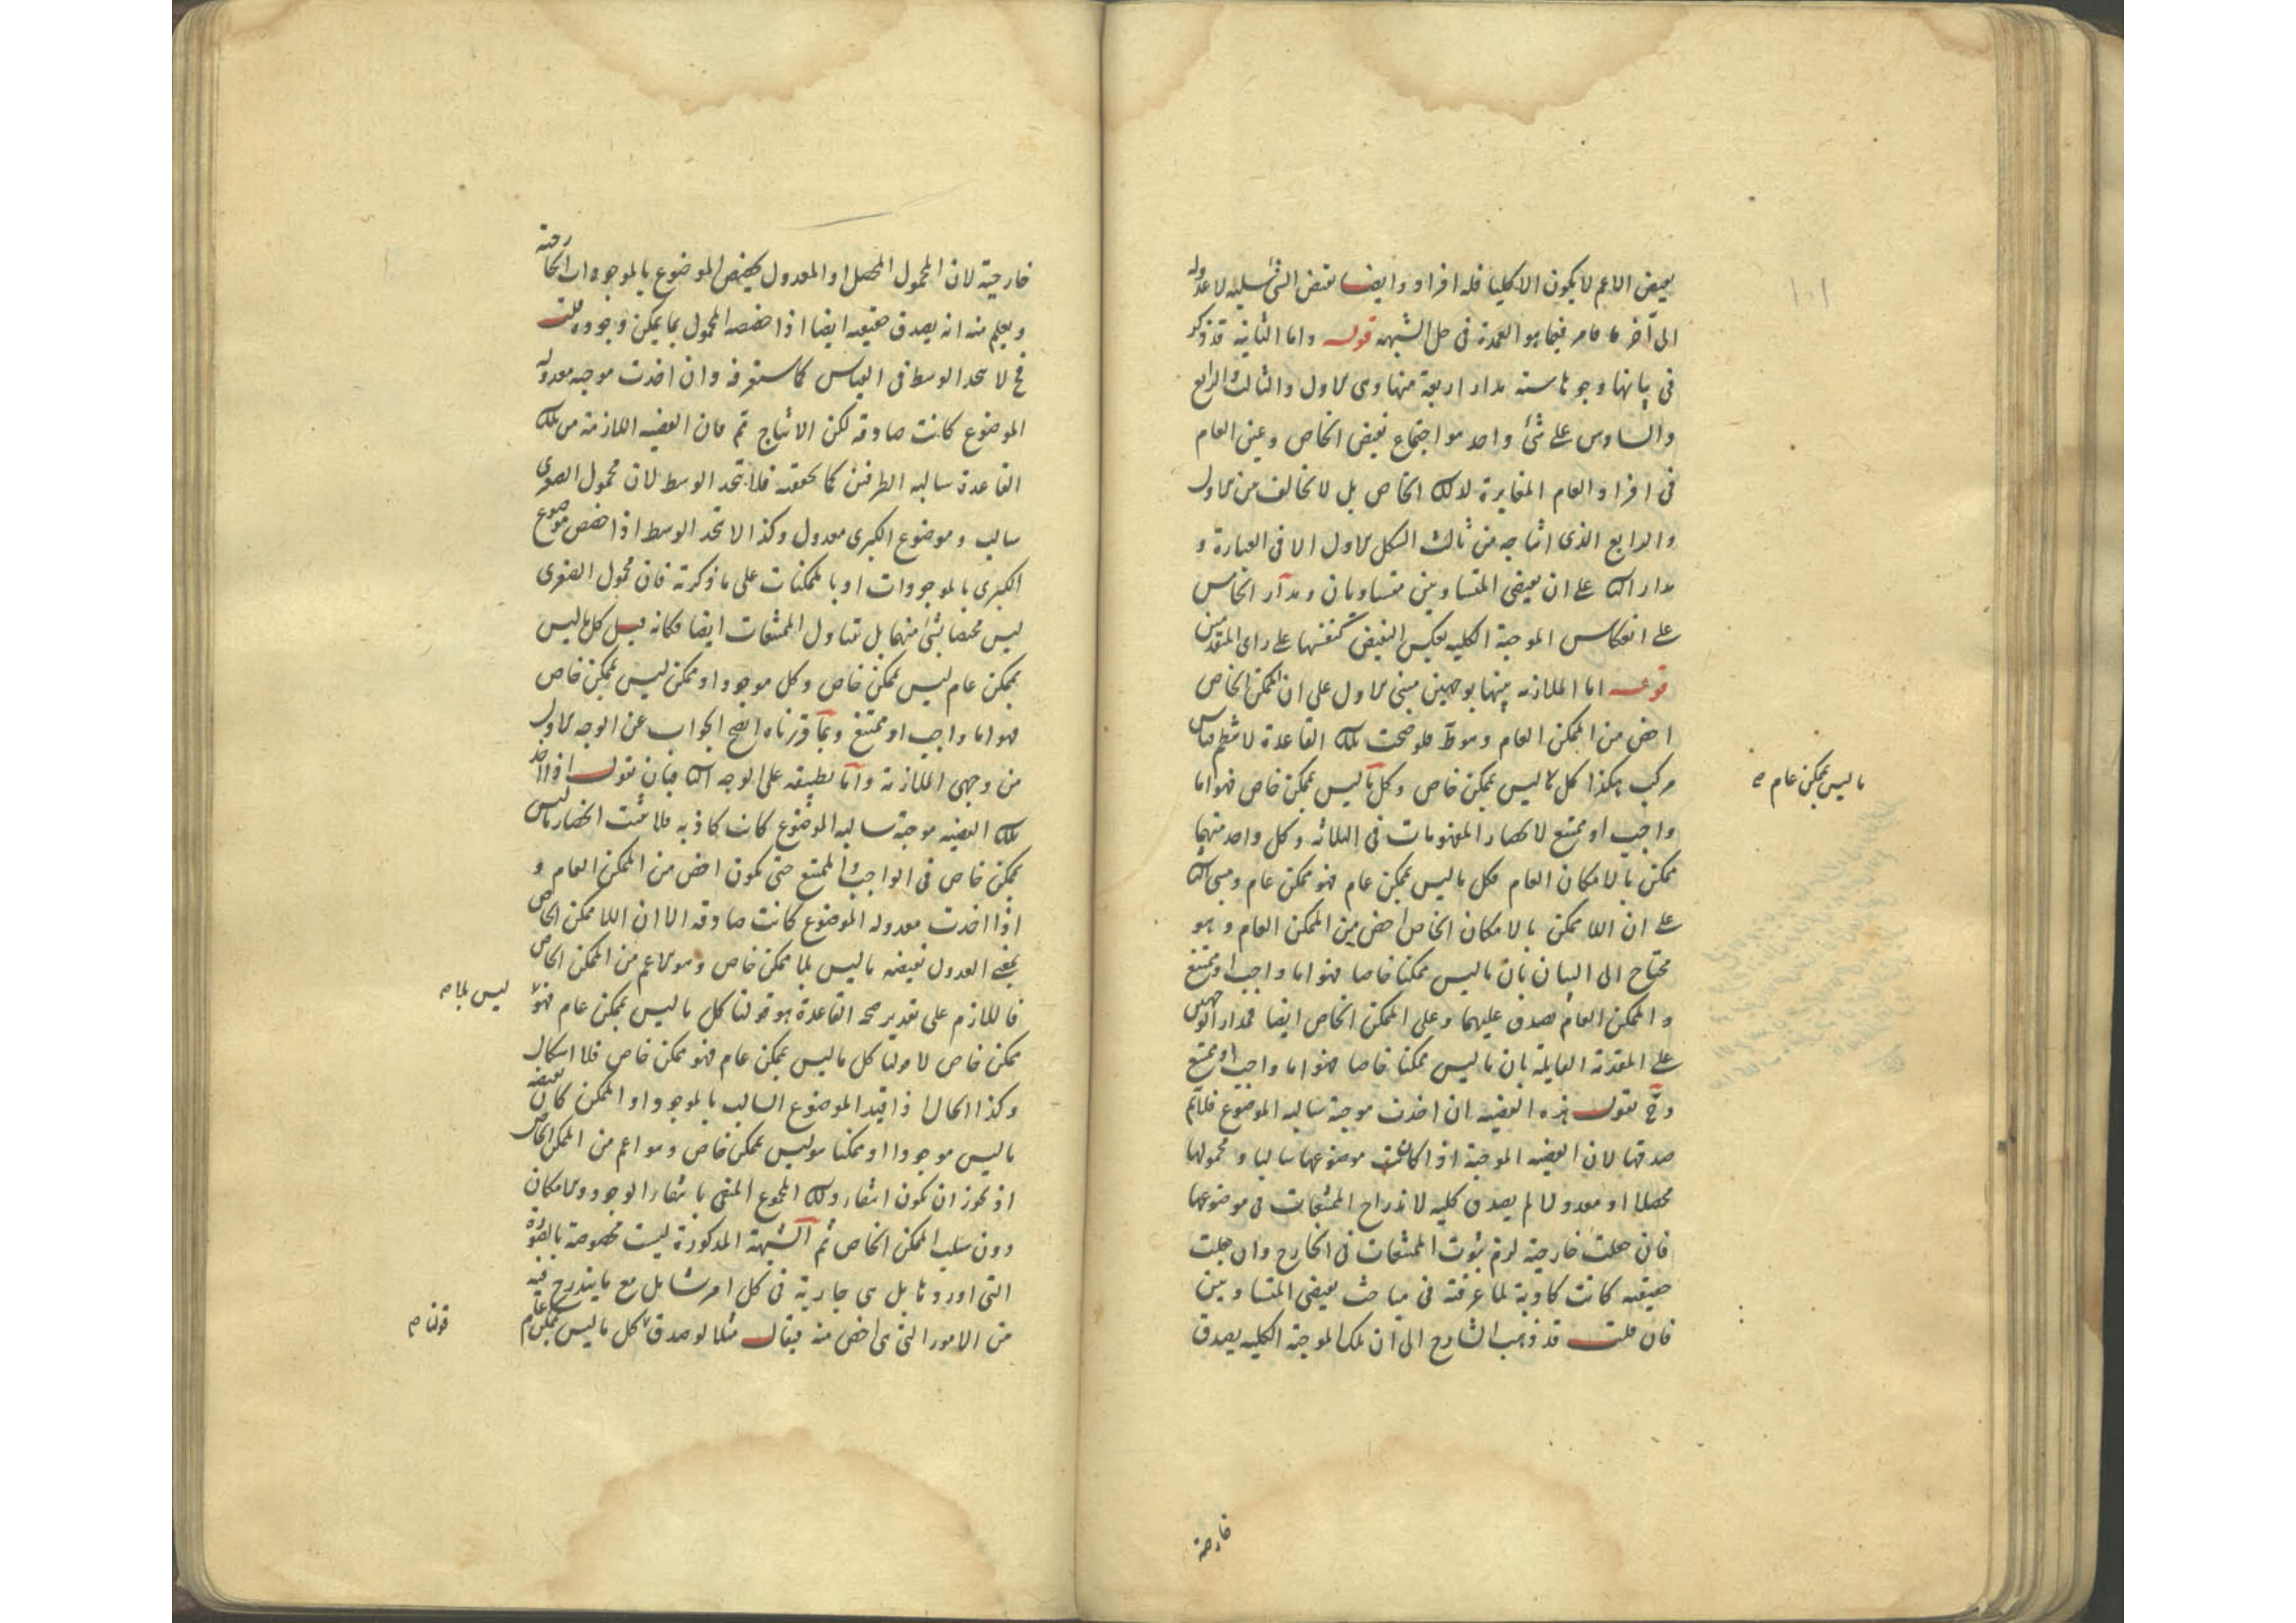 نقيض الاعم لا يكون الا كليا فله افراد وايضا نقيض الشئ سلبه لا عدوله
الى آخر ما مر فيما هو العمدة فى حل الشبهة قوله واما الثانية قد ذكر
فى بيانها وجوها ستة مدار اربعة منها وهى الاول والثالث والرابع
والسادس على شئ واحد هو اجتماع نقيض الخاص وعين العام
فى افراد العام المغايرة لذلك الخاص بل لا تخالف من الاول
والرابع الذى انتاجه من ثالث الشكل الاول الا فى العبارة و
مدار الثانى على ان نقيضى المتساويين متساويان ومدار الخامس
على انعكاس الموجبة الكلية بعكس النقيض كنفسها على راى المتقدمين
قوله اما الملازمة بينها بوجهين مبنى الاول على ان الممكن الخاص
اخص من الممكن العام وهو ظ فلو صحت تلك القاعدة لانتظم قياس
مركب هكذا كل ما ليس بممكن خاص وكل ما ليس بممكن خاص فهو اما
ما ليس بممكن عام صح
واجب او ممتنع لانحصار المفهومات فى الثلاثة وكل واحد منهما
ممكن بالامكان العام فكل ما ليس بممكن عام فهو ممكن عام ومبنى الثانى
على ان اللا ممكن بالامكان الخاص اخص من الممكن العام وهو
محتاج الى البيان بان ما ليس ممكنا خاصا فهو اما واجب او ممتنع
والممكن العام يصدق عليهما وعلى الممكن الخاص ايضا فمدار الوجهين
على المقدمة القايلة بان ما ليس ممكنا خاصا فهو اما واجب او ممتنع
وح نقول هذه القضية ان اخذت موجبة سالبة الموضوع فلا تم
صدقها لان القضية الموجبة اذا كانت موضوعها سالبا ومحمولها
محصلا او معدولا لم يصدق كلية لاندراج الممتنعات فى موضوعها
فان جعلت خارجية لزم ثبوت الممتنعات فى الخارج وان جعلت
حقيقية كانت كاذبة لما عرفته فى مباحث نقيضى المتساويين
فان قلت قد ذهب الشارح الى ان تلك الموجبة الكلية يصدق
خارجية
خارجية لان المحمول المحصل او المعدول يخصص الموضوع بالموجودات الخارجية
ويعلم منه انه يصدق حقيقية ايضا اذا خصصه المحمول بما يمكن وجوده قلت
فح لا يتحد الوسط فى القياس كما ستعرفه وان اخذت موجبة معدولة
الموضوع كانت صادقة لكن الانتاج تم فان القضية اللازمة من تلك
القاعدة سالبة الطرفين كما تحققته فلا يتحد الوسط لان محمول الصغرى
سالب وموضوع الكبرى معدول وكذا لا يتحد الوسط اذا خصص موضوع
الكبرى بالموجودات او بالممكنات على ما ذكرته فان محمول الصغرى
ليس مختصا بشئ منهما بل تتناول الممتنعات ايضا فكانه قيل كل ما ليس
بممكن عام ليس بممكن خاص وكل موجود او ممكن ليس بممكن خاص
فهو اما واجب او ممتنع وبما قررناه اتضح الجواب عن الوجه الاول
من وجهى الملازمة واما تطبيقه على الوجه الثانى فبان نقول اذا اخذ
تلك القضية موجبة سالبة الموضوع كانت كاذبة فلا يثبت انحصار ما ليس
بممكن خاص فى الواجب والممتنع حتى يكون اخص من الممكن العام و
اذا اخذت معدولة الموضوع كانت صادقة الا ان اللا ممكن الخاص
بمعنى العدول نقيضه ما ليس بلا ممكن خاص وهو الاعم من الممكن الخاص
فاللازم على تقدير صحة القاعدة هو قولنا كل ما ليس بممكن عام فهو
ليس بلا صح
ممكن خاص لا قولنا كل ما ليس بممكن عام فهو ممكن خاص فلا اشكال
وكذا الحال اذا قيد الموضوع السالب بالموجود او الممكن كان نقيضه
ما ليس موجودا او ممكنا هو ليس بممكن خاص وهو اعم من الممكن الخاص
اذ يجوز ان يكون انتفاء ذلك المجموع المنفى بانتفاء الوجود والامكان
دون سلب الممكن الخاص ثم الشبهة المذكورة ليست مخصوصة بالصورة
التى اوردها بل هى جارية فى كل امر شامل مع ما يندرج فيه
من الامور التى هى اخص منه فيقال مثلا لو صدق كل ما ليس بممكن عام
قولنا صح